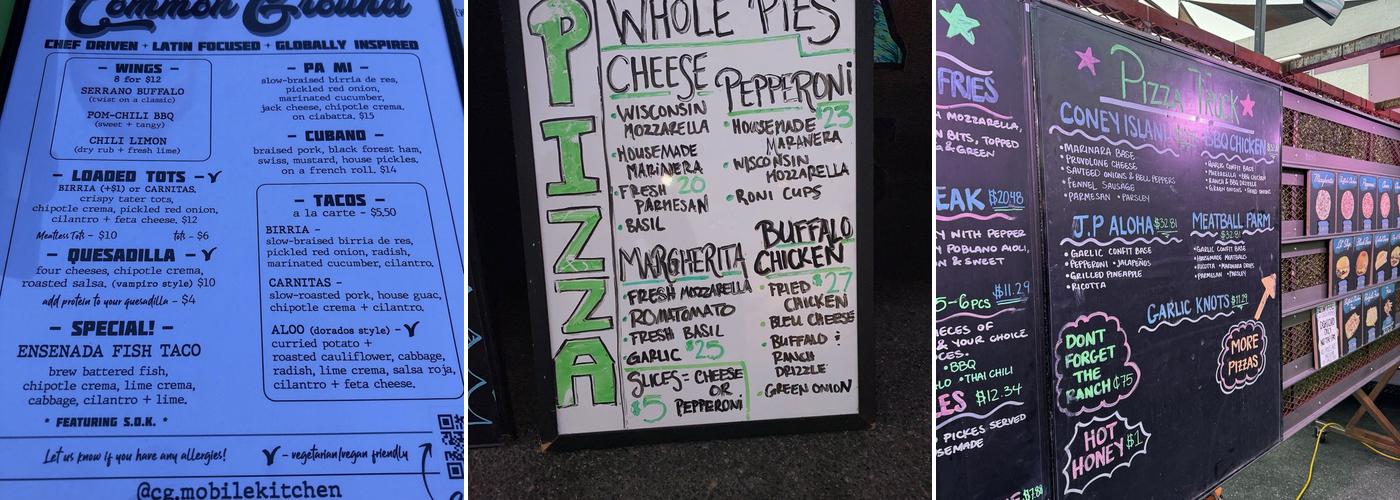 Common Ground
CHEF DRIVEN + LATIN FOCUSED + GLOBALLY INSPIRED
- WINGS -
8 for $12
SERRANO BUFFALO
(twist on a classic)
POM-CHILI BBQ
(sweet + tangy)
CHILI LIMON
(dry rub + fresh lime)
- LOADED TOTS -
BIRRIA (+$1) or CARNITAS,
crispy tater tots,
chipotle crema, pickled red onion,
cilantro + feta cheese. $12
Meatless Tots - $10 tots - $6
- QUESADILLA -
four cheeses, chipotle crema,
roasted salsa. (vampiro style) $10
add protein to your quesadilla - $4
- SPECIAL! -
ENSENADA FISH TACO
brew battered fish,
chipotle crema, lime crema,
cabbage, cilantro + lime.
* FEATURING S.O.K. *
- PA MI -
slow-braised birria de res,
pickled red onion,
marinated cucumber,
jack cheese, chipotle crema,
on ciabatta. $15
- CUBANO -
braised pork, black forest ham,
swiss, mustard, house pickles,
on a french roll. $14
- TACOS -
a la carte - $5.50
BIRRIA -
slow-braised birria de res,
pickled red onion, radish,
marinated cucumber, cilantro.
CARNITAS -
slow-roasted pork, house guac,
chipotle crema + cilantro.
ALOO (dorados style) -
curried potato +
roasted cauliflower, cabbage,
radish, lime crema, salsa roja,
cilantro + feta cheese.
Let us know if you have any allergies!
- vegetarian/vegan friendly
@cg.mobilekitchen
PIZZA
WHOLE PIES
CHEESE
• WISCONSIN
MOZZARELLA
• HOUSEMADE
MARINERA
• FRESH 20
PARMESAN
• BASIL
MARGHERITA
• FRESH MOZZARELLA
• ROMATOMATO
• FRESH BASIL
• GARLIC $25
SLICES = CHEESE
OR
$5 PEPPERONI
PEPPERONI
$23
• HOUSEMADE
MARANERA
• WISCONSIN
MOZZARELLA
• RONI CUPS
BUFFALO
CHICKEN
$27
• FRIED
CHICKEN
• BLEU CHEESE
• BUFFALO
RANCH
DRIZZLE
• GREEN ONION
FRIES
MOZZARELLA,
BITS, TOPPED
& GREEN
EAK $20.48
WITH PEPPER
POBLANO AIOLI,
& SWEET
$11.29
5-6 PCS
PIECES OF
& YOUR CHOICE
• BBQ
• THAI CHILI
$12.34
PICKES SERVED
$7.88
Pizza Truck
CONEY ISLAND
• MARINARA BASE
• PROVOLONE CHEESE
• SAUTEED ONIONS & BELL PEPPERS
• FENNEL SAUSAGE
• PARMESAN • PARSLEY
BBQ CHICKEN
• GARLIC CONFIT BASE
• MOZZARELLA • BBQ CHICKEN
• RANCH & BBQ DRIZZLE
• GREEN ONIONS • FRIED ONIONS
J.P ALOHA $32.81
• GARLIC CONFIT BASE
• PEPPERONI • JALAPEÑOS
• GRILLED PINEAPPLE
• RICOTTA
MEATBALL PARM
$32.81
• GARLIC CONFIT BASE
• HOMEMADE MEATBALLS
• RICOTTA • MARINARA DROPS
• PARMESAN • PARSLEY
GARLIC KNOTS $11.29
DONT
FORGET
THE
RANCH ¢75
MORE
PIZZAS
HOT
HONEY $1